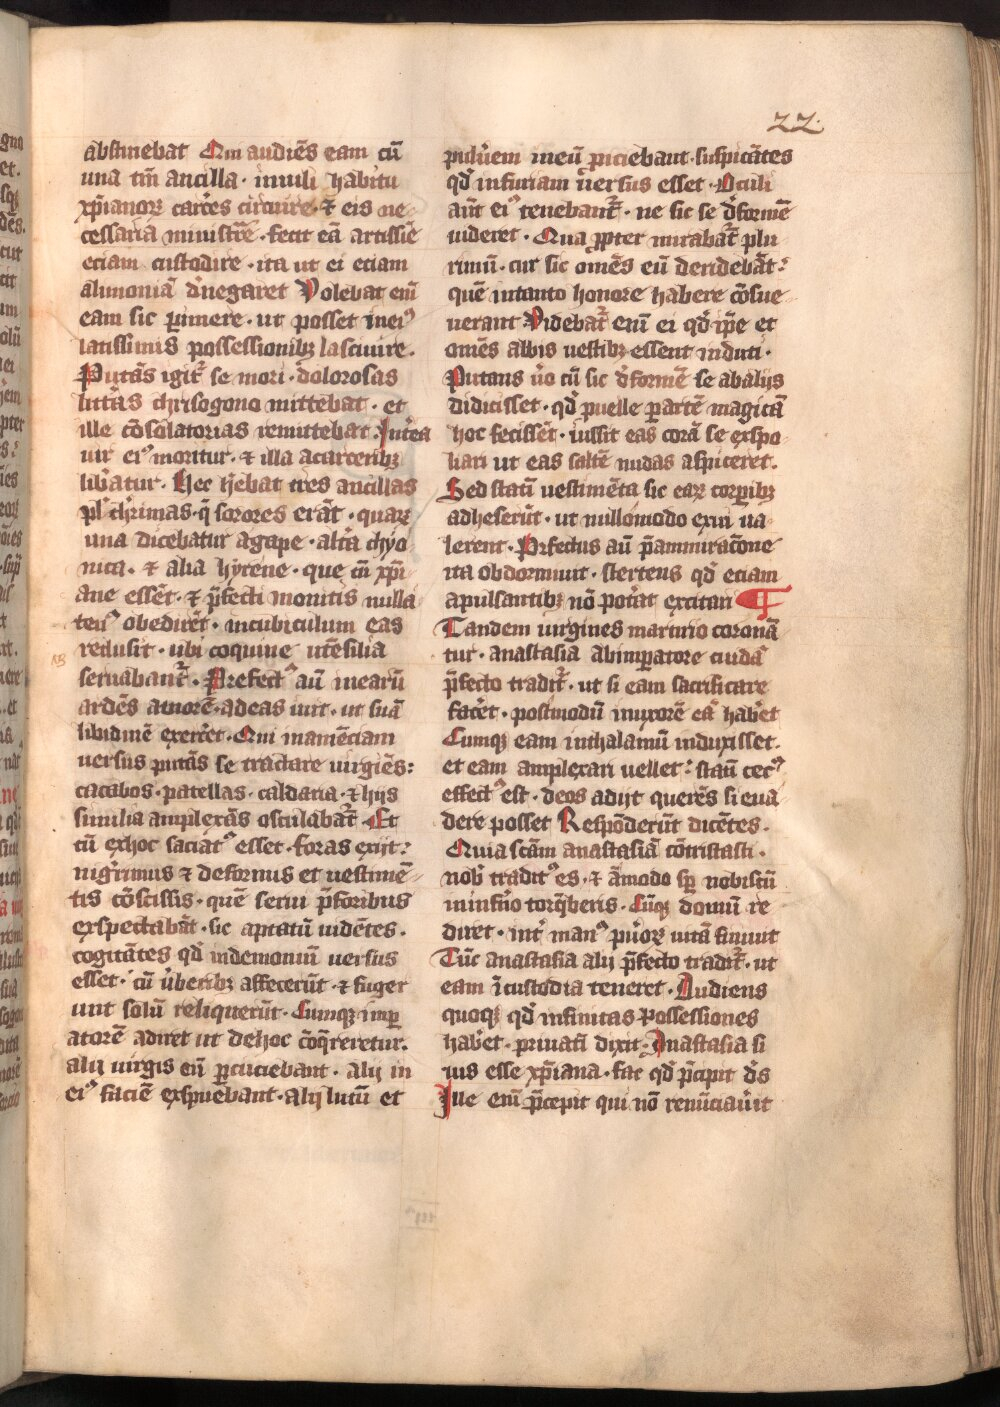 22.
abstinebat Qui audiēs eam cū
una tm̄ ancilla · inuili habitu
xp̄ianoꝝ carc̄es circuire · ⁊ eis ne-
cessaria ministrē · fecit eā artissīē
eciam custodire · ita ut ei eciam
alimoniā d̓negaret Volebat em̄
eam sic ꝑimere · ut posset in ei⁹
latissimis possessionibꝫ lasciuire ·
Putās igit᷑ se mori · dolorosas
litt̓as chrisogono mittebat · et
ille cōsolatorias remittebat · Int̓ea
uir ei⁹ moritur · ⁊ illa a carceribꝫ
lib̓atur · Hec h̓ebat tres ancillas
pl̓ch̓rimas · q̄ sorores erāt · quaꝝ
una dicebatur agape · alt̓a chyo
nica · ⁊ alia hyrene · que cū xp̄i-
ane essēt · ⁊ p̄fecti monitis nulla
ten⁹ obedirēt · in cubiculum eas
reclusit · ubi coquine utēsilia
seruabant᷑ · Prefect⁹ aū in earū
ardēs amorē · ad eas iuit · ut suā
libidinē exerc̓et · Qui in amēciam
uersus putās se tractare uirgīēs :
cacabos · patellas · caldaria · ⁊ hijs
similia amplexās osculabat᷑ · Et
cū ex hoc saciat⁹ esset · foras exijt :
nigerrimus ⁊ deformis et uestimē-
tis cōscissis · quē serui p̄ foribus
exspectabāt · sic aptatū uidētes ·
cogitātes qd̓ in demoniū uersus
esset · cū ūberibꝫ affecerūt · ⁊ fuger
unt solū reliquerūt · Cumqꝫ imꝑ
atorē adiret ut de hoc cōq̄reretur ·
alij uirgis eū ꝑcuciebant · alij in
ei⁹ faciē exspuebant · alij lutū et
puluēem in eū ꝓiciebant · suspicātes
qd̓ in furiam ūersus esset · Oculi
aūt ei⁹ tenebant᷑ · ne sic se d̓formē
uideret · Qua ꝓpter mirabat᷑ plu-
rimū · cur sic omēs eū deridebāt :
quē in tanto honore habere cōsue-
uerant · Videbat᷑ enī ei qd̓ ip̄e et
omēs albis uestibꝫ essent induti ·
Putans ūo cū sic d̓formē se ab alijs
didicisset · qd̓ puelle ꝑ artē magicā
hoc fecissēt · iussit eas corā se exspo-
liari ut eas saltē nudas aspiceret ·
Sed statī uestimēta sic eaꝝ corꝑibꝫ
adheserūt · ut nullomodo exui ua-
lerent · Prefectus aū p̄ ammiracōne
ita obdormiuit · stertens qd̓ eciam
a pulsantibꝫ nō pot̓at excitari ¶
Tandem uirgines martirio coronā
tur · anastasia ab imꝑatore cuidā
p̄fecto tradit᷑ · ut si eam sacrificare
fac̓et · postmodū in uxorē eā hab̓et
Cumqꝫ eam in thalamū induxisset ·
et eam amplexari uellet : statī cec⁹
effect⁹ est · deos adijt querēs si eua-
dere posset Respōderūt dicētes ·
Quia scām anastasiā cōtristasti ·
nob̓ tradit⁹ es · ⁊ āmodo sꝑ nobiscū
in inf̓no torq̄beris · Cūqꝫ domū re
diret · int̓ man⁹ pūoꝝ uitā finiuit
Tūc anastasia alij p̄fecto tradit᷑ · ut
eam ī custodia teneret · Audiens
quoqꝫ qd̓ infinitas possessiones
hab̓et · priuatī dixit · Anastasia si
uis esse xp̄iana · fac qd̓ p̄cipit dn̄s
Jue enī p̄cepit qui nō renūciau̓it